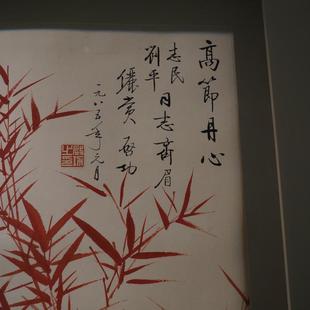 高節丹心
志民
劉平
同志齊眉
儷賞 啟功
一九八五年元月